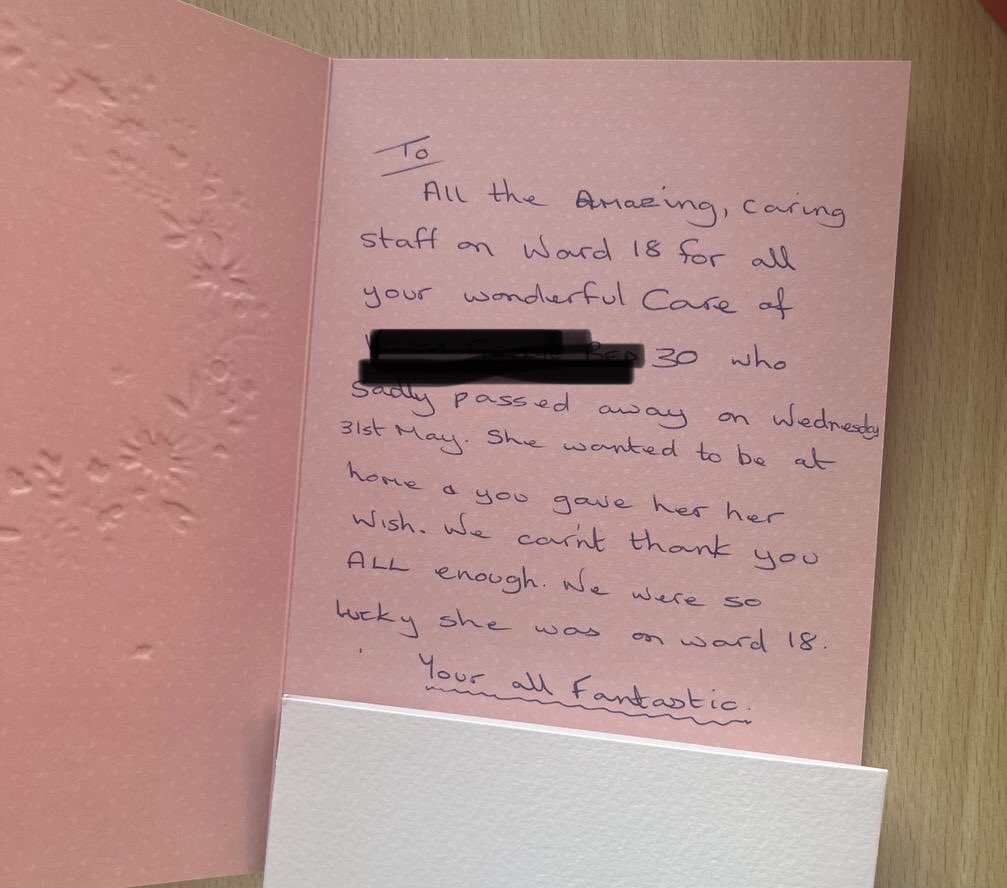 To
All the Amazing, caring
staff on Ward 18 for all
your wonderful Care of
30 who
Sadly passed away on Wednesday
31st May. She wanted to be at
home & you gave her her
Wish. We car'nt thank you
ALL enough. We were so
lucky she was on ward 18.
Your all Fantastic.